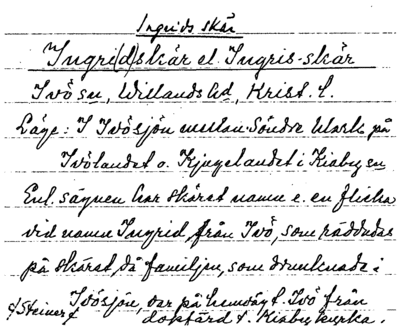 Ingrids skär
Ingri(d)skär el. Ingris-skär
Ivö sn, Willands hd, Krist. l.
Läge: I Ivösjön mellan Söndre Mark på
Ivölandet o. Kjugelandet i Kiaby sn
Enl. sägnen har skäret namn e. en flicka
vid namn Ingrid, från Ivö, som räddades
på skäret då familjen, som drunknade i
Ivösjön, var på hemväg t. Ivö från
dopfärd t. Kiaby kyrka.